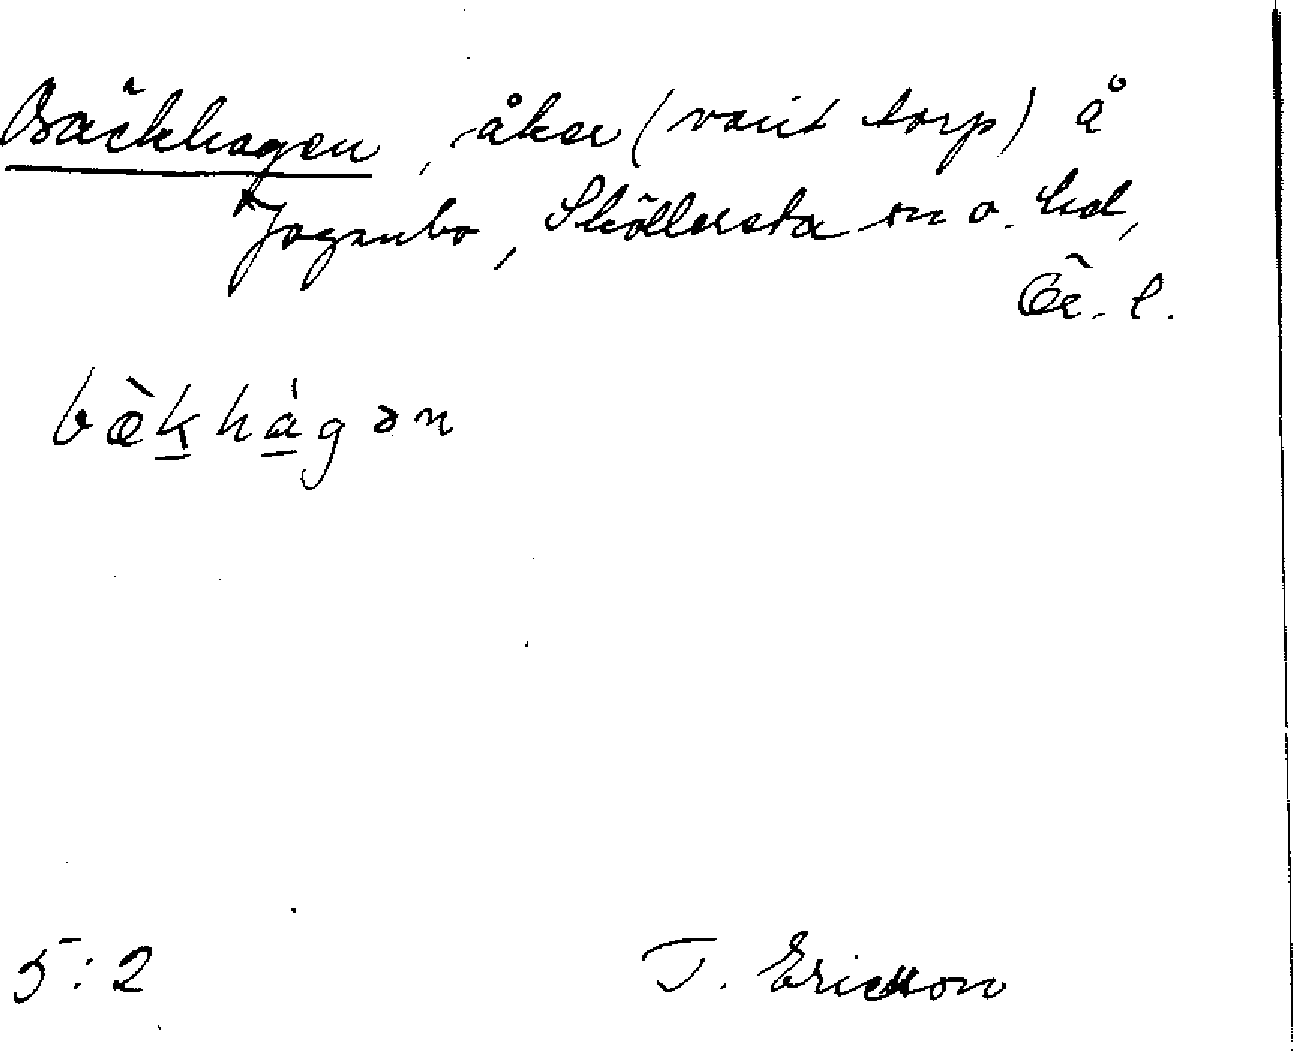 Bäckhagen, åker (varit torp) å
Jogenbo, Sköllersta sn o. hd,
Ör. l.
bæ̀khágən
5:2
T. Ericsson